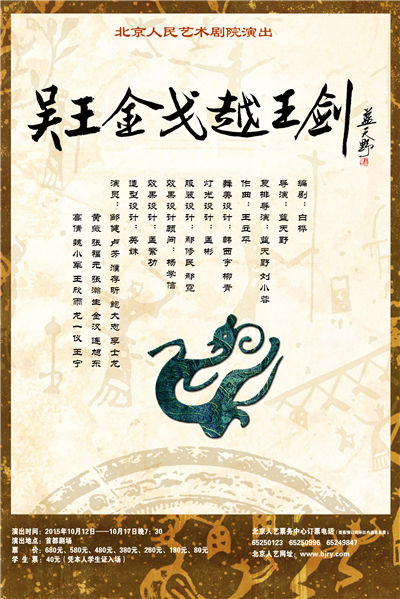 北京人民艺术剧院演出
吴王金戈越王剑
蓝天野
编剧：白桦
导演：蓝天野
复排导演：蓝天野 刘小蓉
作曲：王立平
舞美设计：韩西宇 柳青
灯光设计：孟彬
服装设计：鄢修民 鄢霓
效果设计顾问：杨学信
效果设计：孟繁功
造型设计：英姝
演员：邹健 卢芳 濮存昕 鲍大志 李士龙
黄薇 张福元 张瀚生 金汉 连旭东
高倩 魏小军 王欣雨 龙一仪 王宁
演出时间：2015年10月12日——10月17日晚7：30
演出地点：首都剧场
票 价：680元、580元、480元、380元、280元、180元、80元
学 生 票：40元（凭本人学生证入场）
北京人艺票务中心订票电话
65250123 65250996 65249847
北京人艺网址：www.bjry.com